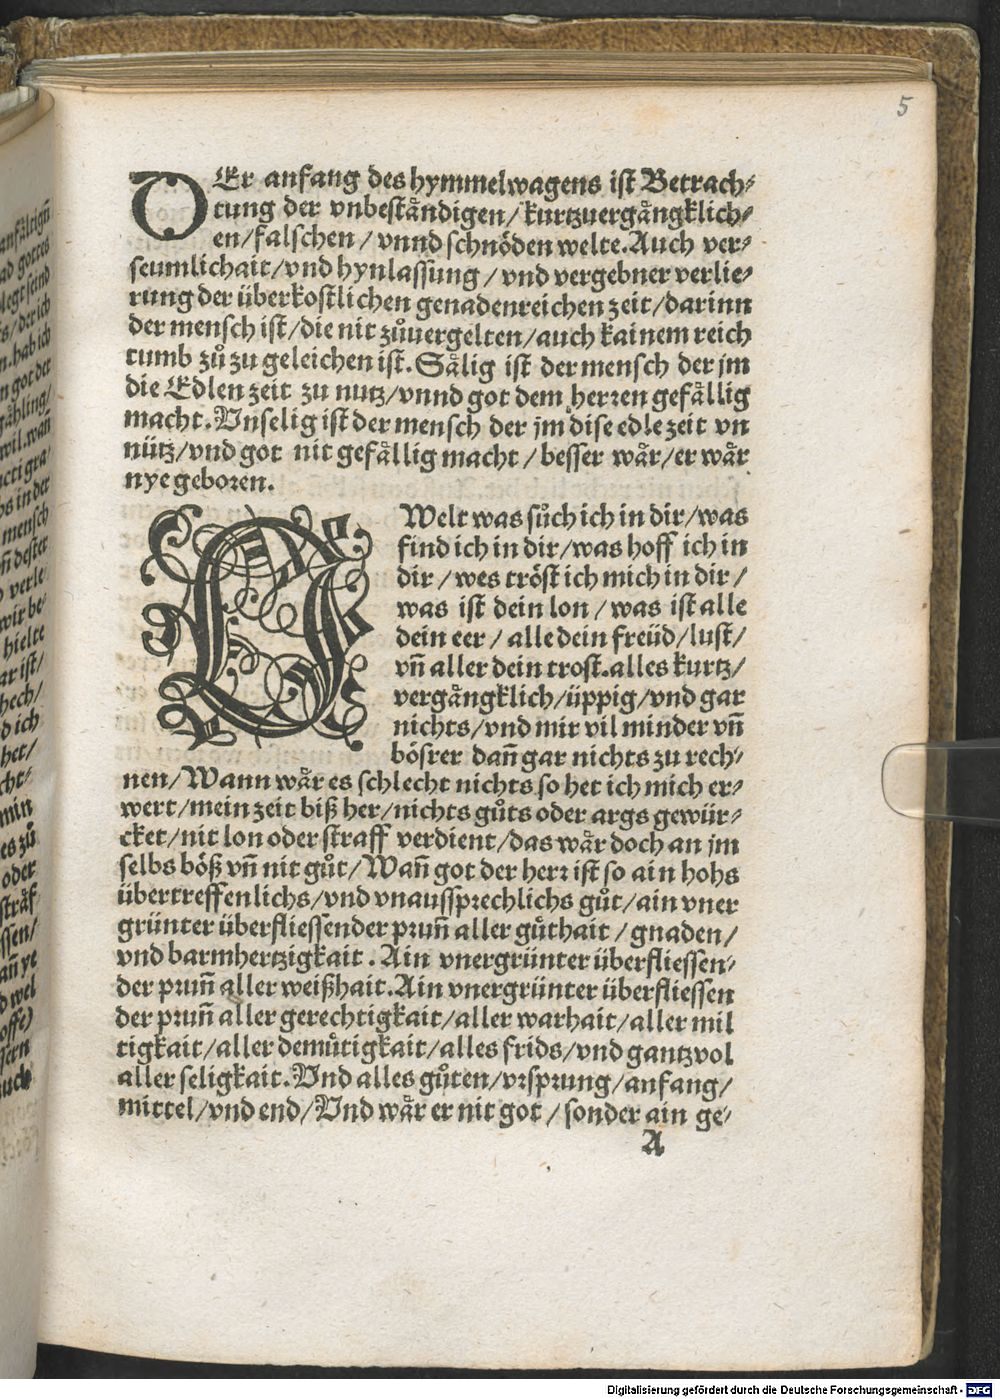 5
DEr anfang des hymmelwagens ist Betrach⸗
tung der vnbeståndigen/ kurtzuergångklich⸗
en/falschen / vnnd schnöden welte. Auch ver⸗
seumlichait/vnd hynlassung / vnd vergebner verlie⸗
rung der überkostlichen genadenreichen zeit/darinn
der mensch ist/die nit zůuergelten/auch kainem reich
tumb zů zu geleichen ist. Sålig ist der mensch der jm
die Edlen zeit zu nutz/vnnd got dem herren gefållig
macht. Vnselig ist der mensch der jm dise edle zeit vn
nütz/vnd got nit gefållig macht / besser wår/er wår
nye geboren.
O Welt was sůch ich in dir/was
find ich in dir/was hoff ich in
dir / wes tröst ich mich in dir /
was ist dein lon / was ist alle
dein eer / alle dein freüd/lust/
vñ aller dein trost.alles kurtz/
vergångklich/üppig/vnd gar
nichts/vnd mir vil minder vñ
bösrer dañ gar nichts zu rech⸗
nen/Wann wår es schlecht nichts so het ich mich er⸗
wert/mein zeit biß her/nichts gůts oder args gewür⸗
cket/nit lon oder straff verdient/das wår doch an jm
selbs böß vñ nit gůt/Wañ got der herr ist so ain hohs
übertreffenlichs/vnd vnaussprechlichs gůt/ain vner
grünter überfliessender prun̄ aller gůthait / gnaden/
vnd barmhertzigkait. Ain vnergrünter überfliessen⸗
der prun̄ aller weißhait.Ain vnergrünter überfliessen
der prun̄ aller gerechtigkait/aller warhait/aller mil
tigkait/aller demůtigkait/alles frids/vnd gantz vol
aller seligkait.Vnd alles gůten/vrsprung/anfang/
mittel/vnd end/Vnd wår er nit got / sonder ain ge⸗
A
Digitalisierung gefördert durch die Deutsche Forschungsgemeinschaft - DFG